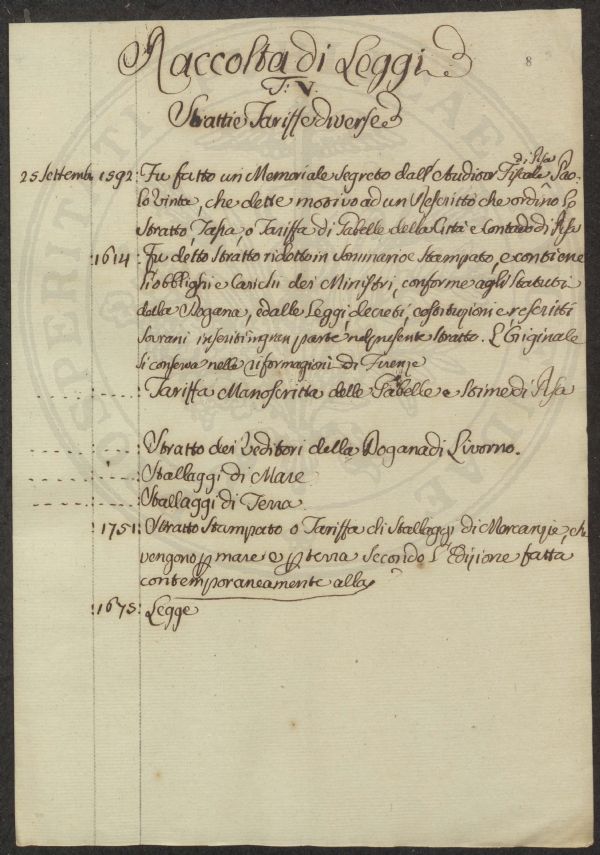 Raccolta di Leggi
8
T. V.
Stratti e Tariffe diverse
25 Settemb. 1592: Fu fatto un Memoriale segreto dall'Auditor Fiscale di Pisa Pao-
lo Vinta, che dette motivo ad un Rescritto che ordinò lo
Stratto, Tassa, o Tariffa di Gabelle della Città e Contado di Pisa
:1614: Fu detto Stratto ridotto in Sommario e Stampato, e contiene
gl'obblighi e Carichi dei Ministri, conforme agli Statuti
della Dogana, e dalle Leggi, decreti, costituzioni e rescritti
Sovrani inseriti in gran parte nel presente Stratto. L'Originale
si conserva nelle riformagioni di Firenze
Tariffa Manoscritta delle Gabelle e Stime di Pisa
Stratto dei Veditori della Dogana di Livorno.
Stallaggi di Mare
Stallaggi di Terra
:1751: Stratto Stampato o Tariffa di Stallaggi di Mercanzie, che
vengono p mare e p terra secondo l'Edizione fatta
contemporaneamente alla
:1675: Legge